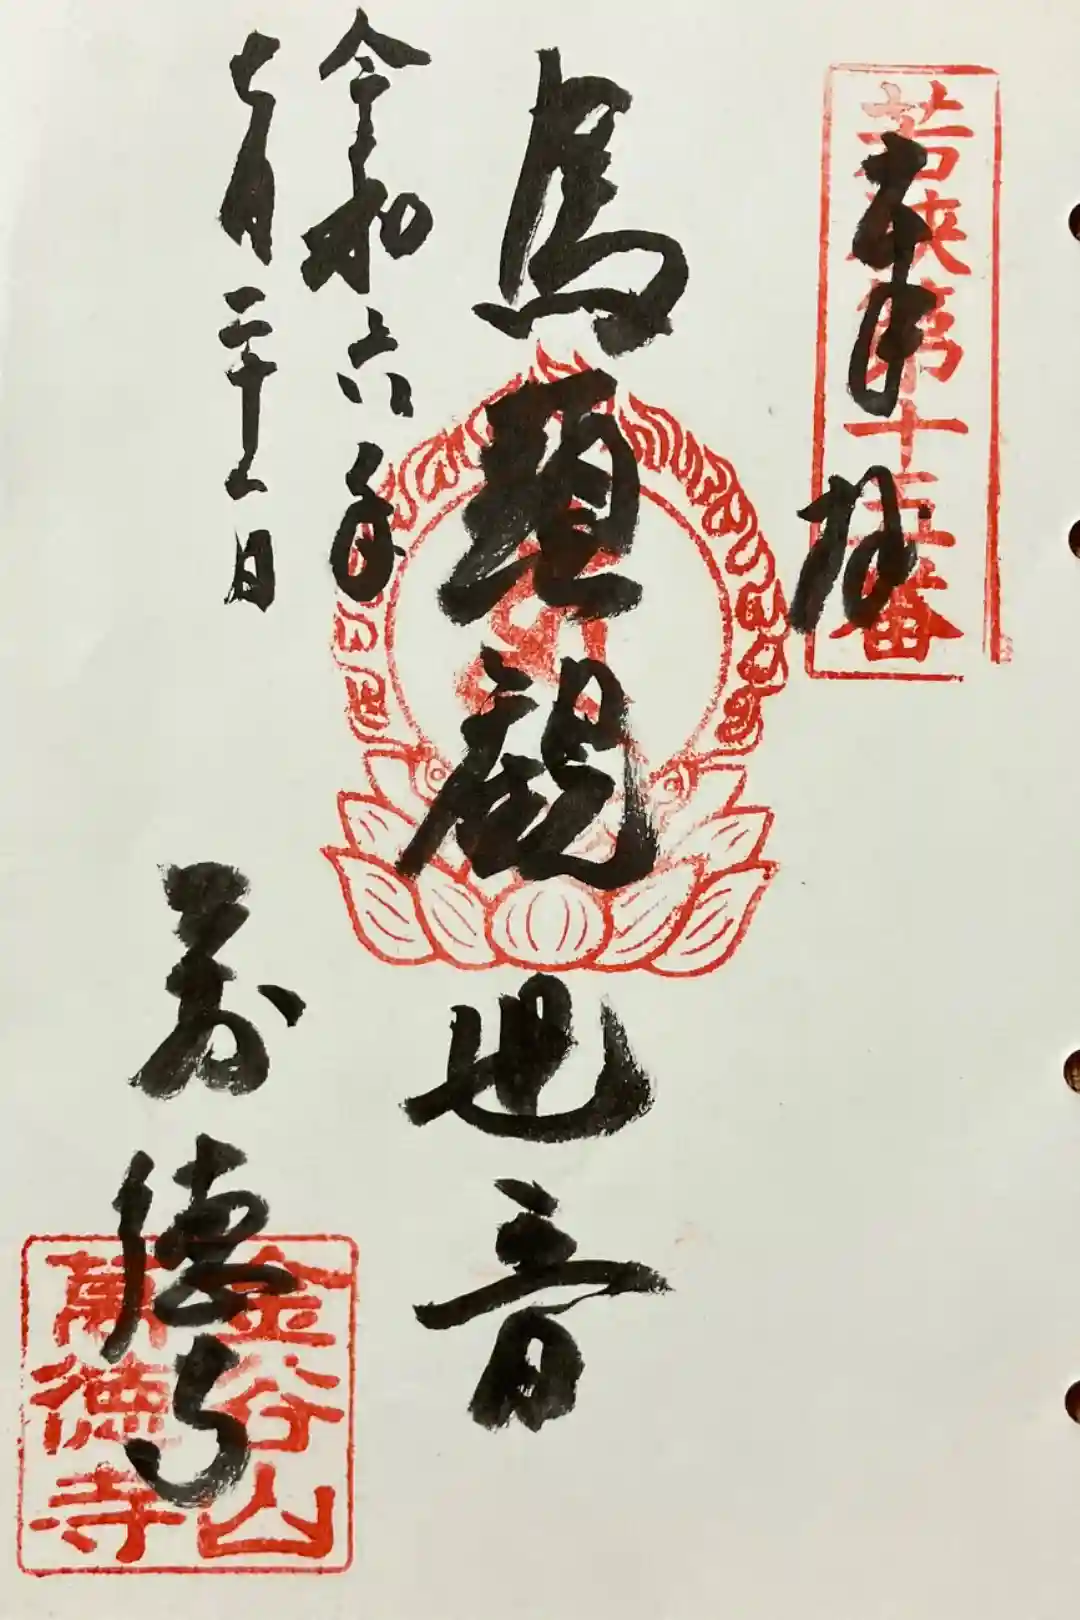 若狭第十五番
奉拝
馬頭観世音
令和六年
七月二十一日
萬徳寺
金谷山
萬徳寺